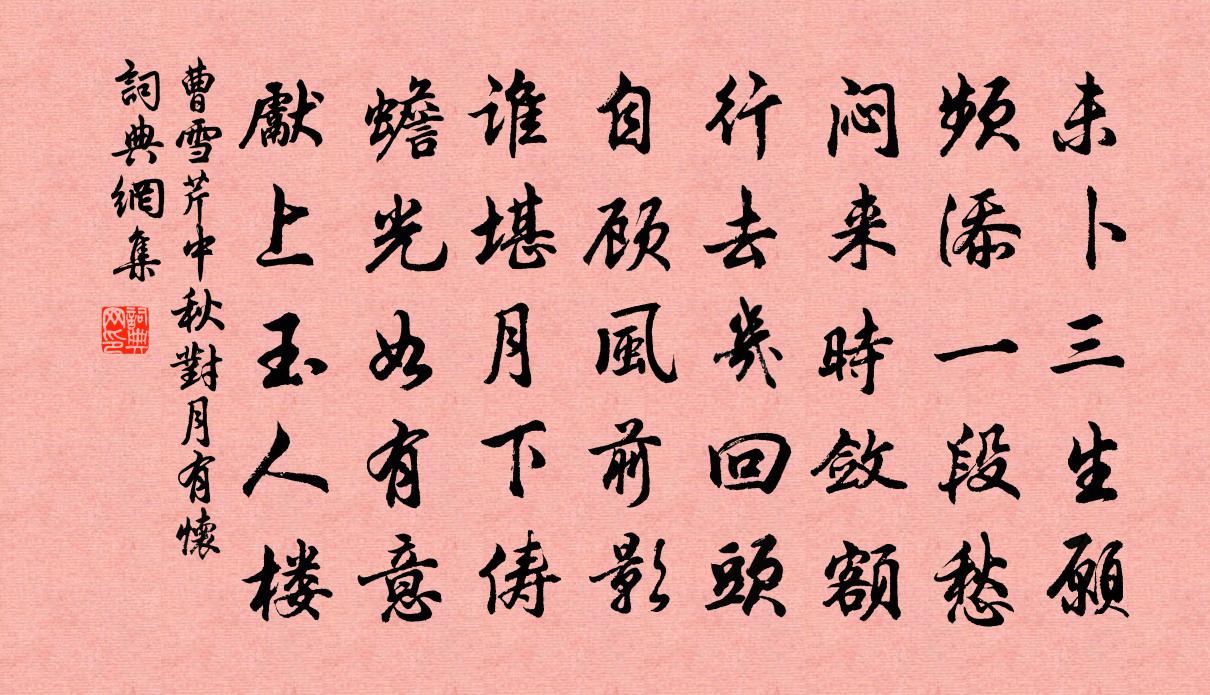 未卜三生願
频添一段愁
闷来時敛額
行去幾回頭
自顾風前影
谁堪月下俦
蟾光如有意
獻上玉人楼
曹雪芹中秋對月有懷
詞典網集
詞典网印